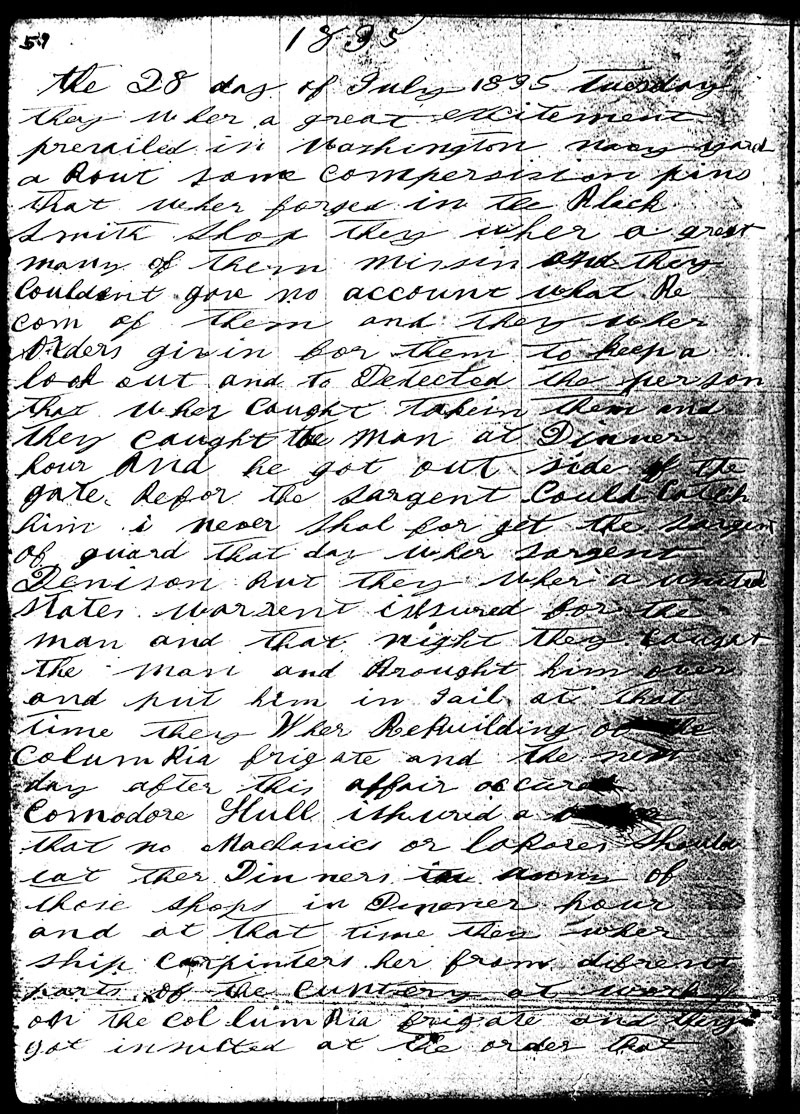 59 1835
the 28 day of July 1835 tuesday
they wher a great excitement
prevailed in Washington navy yard
a Bout some compersision pans
that wher forged in tee Black
Smith Shop they wher a great
many of them missin and they
Couldent gove no account what Be
com of them and they wher
Orders givin for them to keep a
look out and to Detected the person
that wher Caught takein them and
they caught the man at Dinner
hour And he got out side of the
gate Befor the Sargent Could Catch
him i never shal for get the Sargent
of guard that day wher Sargent
Denison But they wher a united
States warrent issured for the
man and that night they Caught
the man and Brought him over
and put him in Jail at that
time they Wher ReBuilding the
ColumBia frigate and the next
day after this affair occured
Comodore Hull ishured a
that no Machanics or laBores Should
eat ther Dinners in anny of
those shops in Dinner hour
and at that time they wher
ship carpinters her from difrent
parts of the Cuntery at work
on the ColumBia frigate and they
got insulted at the order that